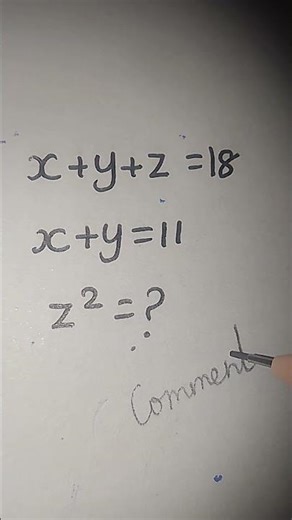 x+y+z=18
x+y=11
z²=?
Comment